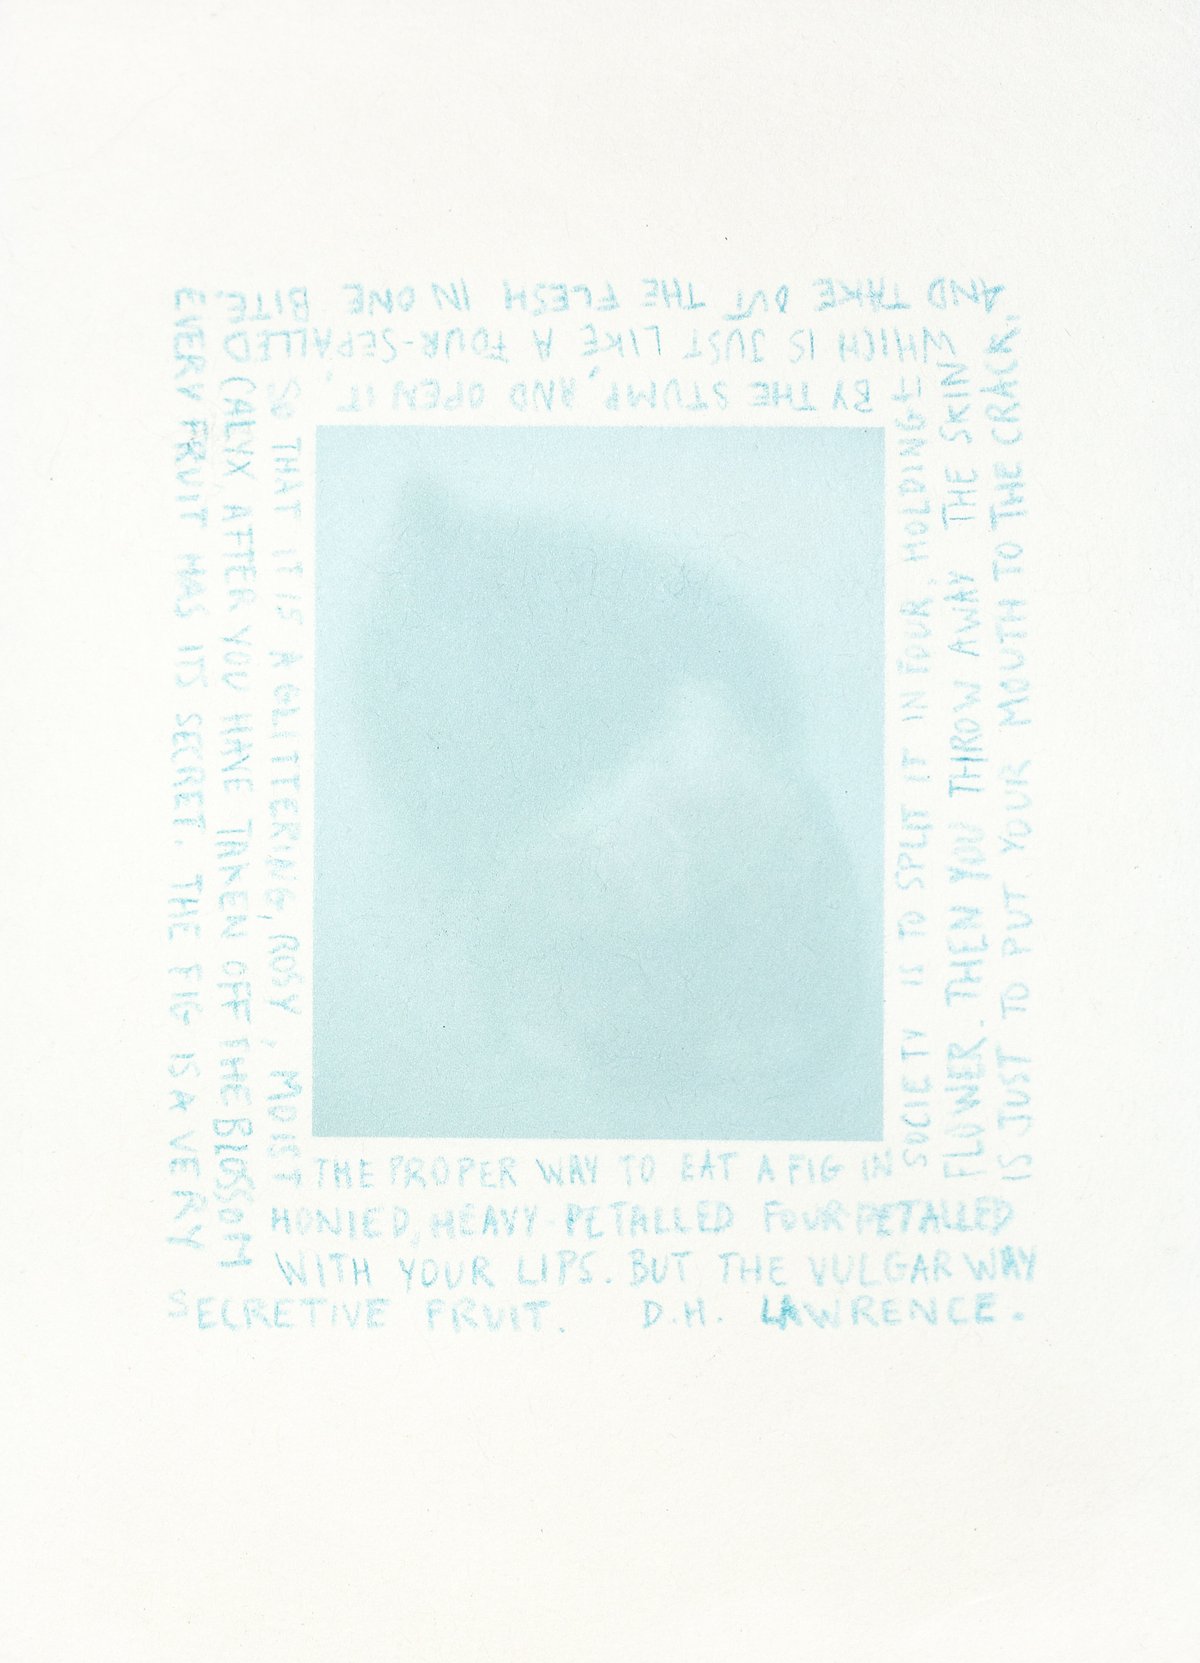 THE PROPER WAY TO EAT A FIG IN
SOCIETY IS TO SPLIT IT IN FOUR, HOLDING IT
BY THE STUMP, AND OPEN IT,
SO THAT IT IS A GLITTERING, ROSY, MOIST
HONIED, HEAVY-PETALLED FOUR-PETALLED
FLOWER. THEN YOU THROW AWAY THE SKIN
WHICH IS JUST LIKE A FOUR-SEPALLED
CALYX AFTER YOU HAVE TAKEN OFF THE BLOSSOM
WITH YOUR LIPS. BUT THE VULGAR WAY
IS JUST TO PUT YOUR MOUTH TO THE CRACK,
AND TAKE OUT THE FLESH IN ONE BITE.
EVERY FRUIT HAS ITS SECRET. THE FIG IS A VERY
SECRETIVE FRUIT. D.H. LAWRENCE.